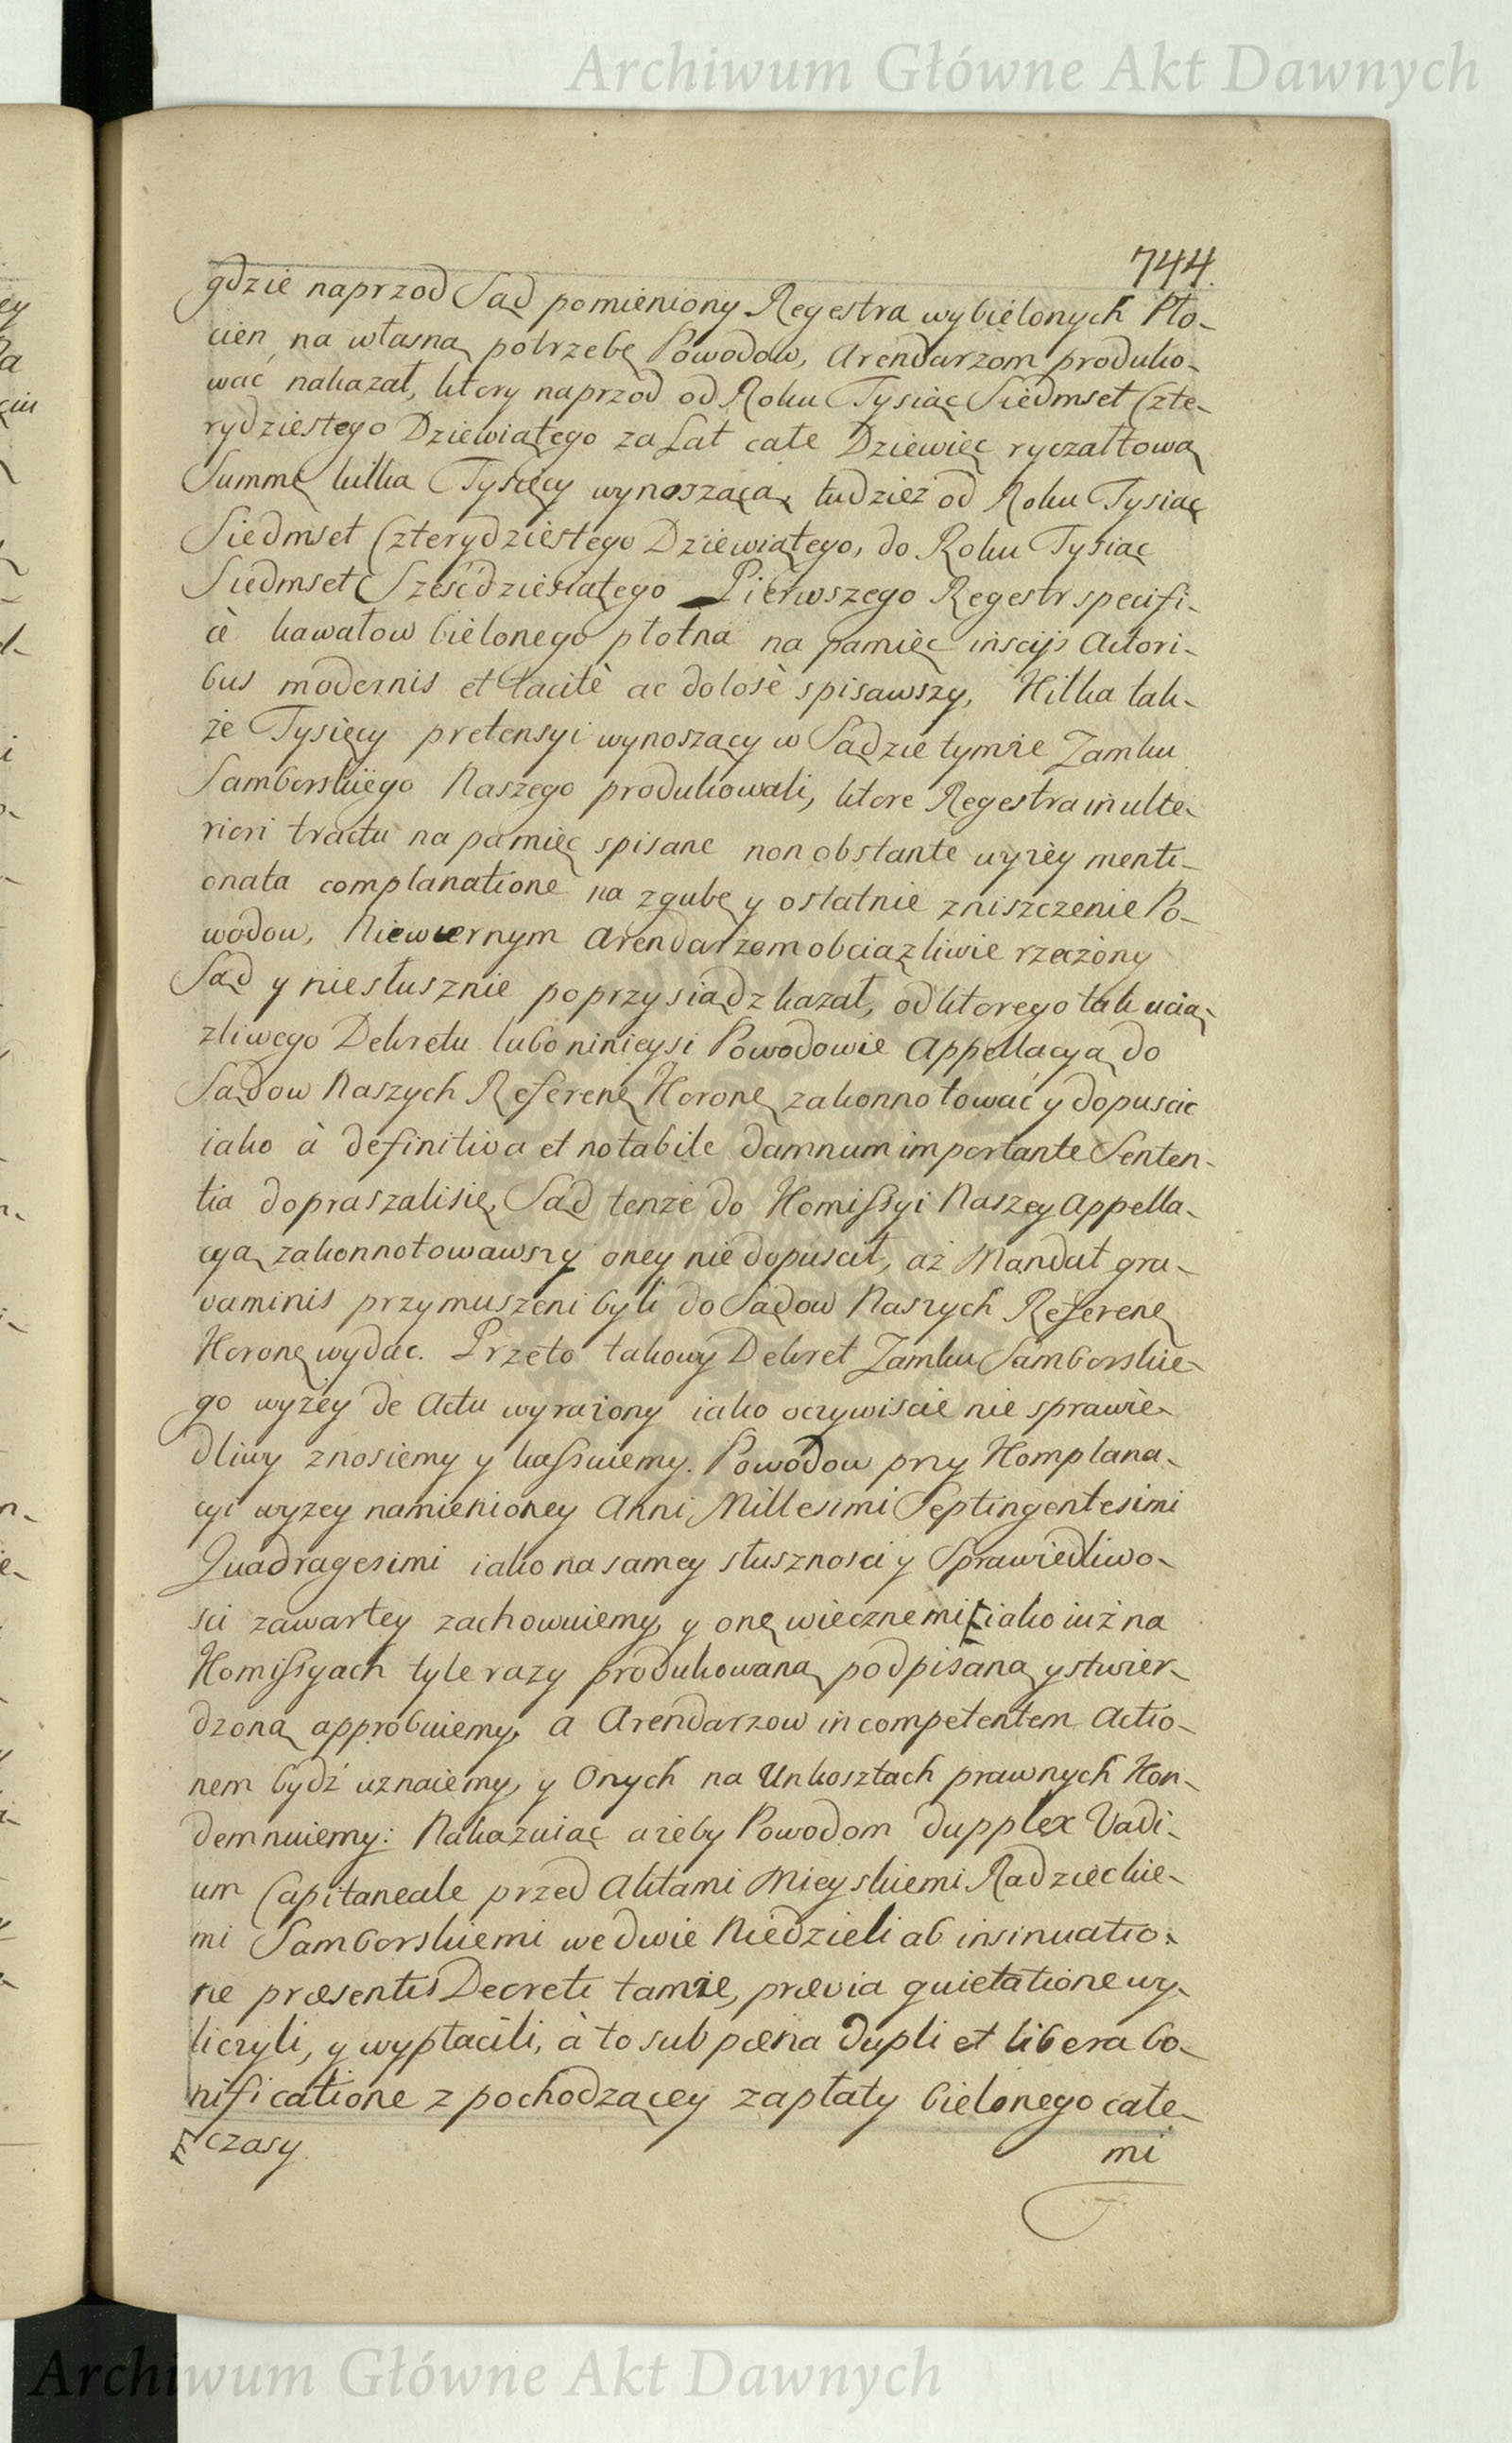 Archiwum Główne Akt Dawnych
744.
gdzie naprzod Sąd pomieniony Regestra wybielonych Pło-
cien na własną potrzebę Powodow, Arendarzom produko-
wać nakazał, ktory naprzod od Roku Tysiąc Siedmset Czte-
rydziestego Dziewiątego za Lat całe Dziewięć ryczałtową
Summę kilka Tysięcy wynoszącą, tudzież od Roku Tysiąc
Siedmset Czterydziestego Dziewiątego, do Roku Tysiąc
Siedmset Sześćdziesiątego Pierwszego Regestr specifi-
cè kawałow bielonego płotna na pamięć insciis Actori-
bus modernis et tacitè ac dolosè spisawszy, Kilka tak-
że Tysięcy pretensyi wynoszący w Sądzie tymże Zamku
Samborskiego Naszego produkowali, ktore Regestra in ulte-
riori tractu na pamięć spisane non obstante wyżey menti-
onata complanatione na zgubę y ostatnie zniszczenie Po-
wodow, Niewiernym Arendarzom obciążliwie rzeżony
Sąd y niesłusznie poprzysiądz kazał, od ktorego tak ucią-
żliwego Dekretu lubo ninieysi Powodowie Appellacyą do
Sądow Naszych Referenę Koronę zakonnotować y dopuscić
iako à definitiva et notabile damnum importante Senten-
tia dopraszali się, Sąd tenże do Komissyi Naszey Appella-
cyą zakonnotowawszy oney nie dopuscił, aż Mandat gra-
vaminis przymuszeni byli do Sądow Naszych Referenę
Koronę wydać. Przeto takowy Dekret Zamku Samborskie-
go wyżey de Actu wyrażony iako oczywiscie nie sprawie-
dliwy znosiemy y kassuiemy. Powodow przy Komplana-
cyi wyżey namienioney Anni Millesimi Septingentesimi
Quadragesimi iako na samey słusznosci y Sprawiedliwo-
sci zawartey zachowuiemy, y onę wiecznemi iako iuż na
Komissyach tyle razy produkowaną podpisaną y stwier-
dzoną approbuiemy, a Arendarzow incompetentem Actio-
nem bydź uznaiemy, y Onych na Unkosztach prawnych Kon-
demnuiemy: Nakazuiąc ażeby Powodom dupplex Vadi-
um Capitaneale przed Aktami Mieyskiemi Radzieckie-
mi Samborskiemi we dwie Niedzieli ab insinuatio-
ne præsentis Decreti tamże, prævia quietatione wy-
liczyli, y wypłacili, à to sub pæna dupli et libera bo-
nificatione z pochodzącey zapłaty bielonego całe-
czasy
mi
Archiwum Główne Akt Dawnych